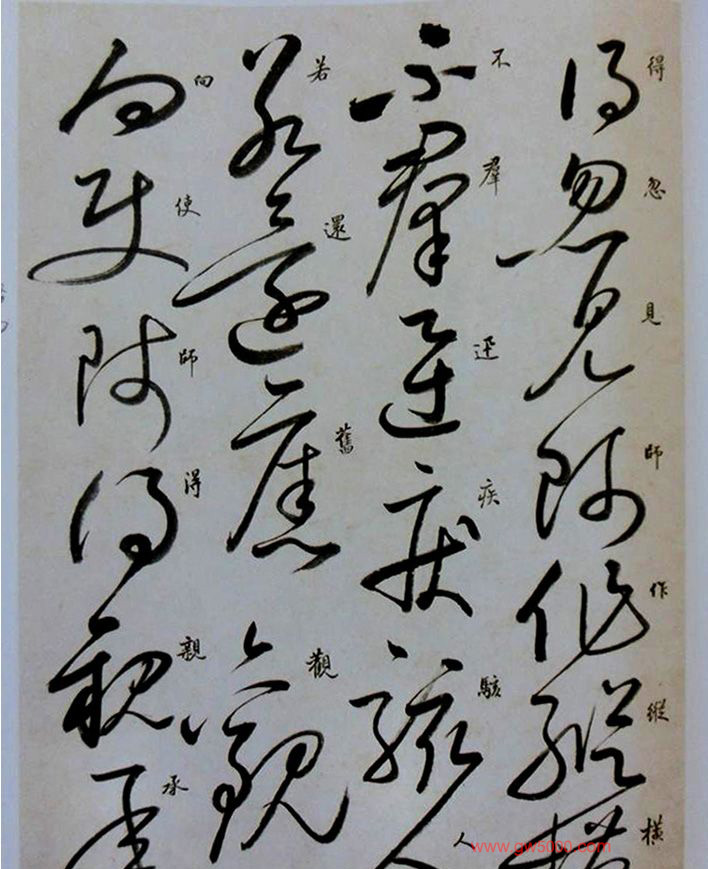 得忽見師作縱橫
不羣迅疾駭人
若還舊觀
向使師得親承
www.gw5000.com